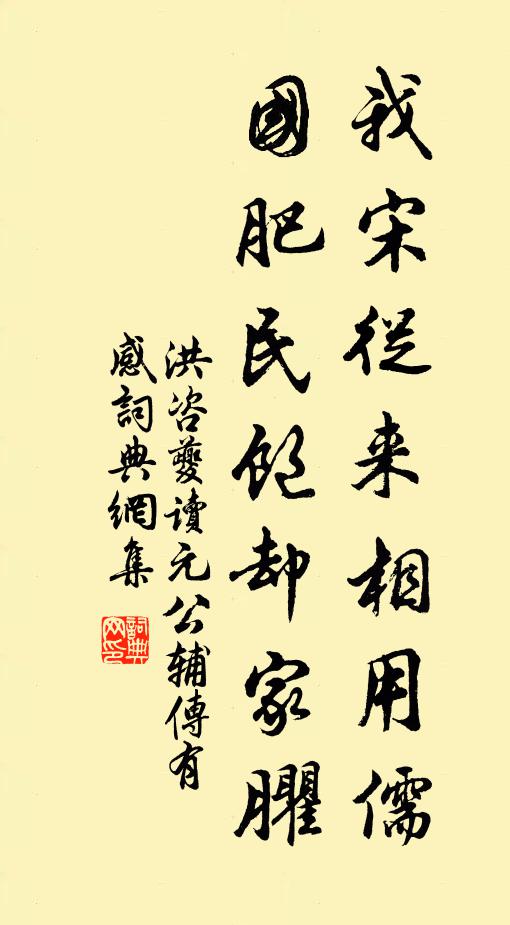 我宋從来相用儒
國肥民飽却家臞
洪咨夔讀元公輔傳有
感詞典網集
詞典
网印